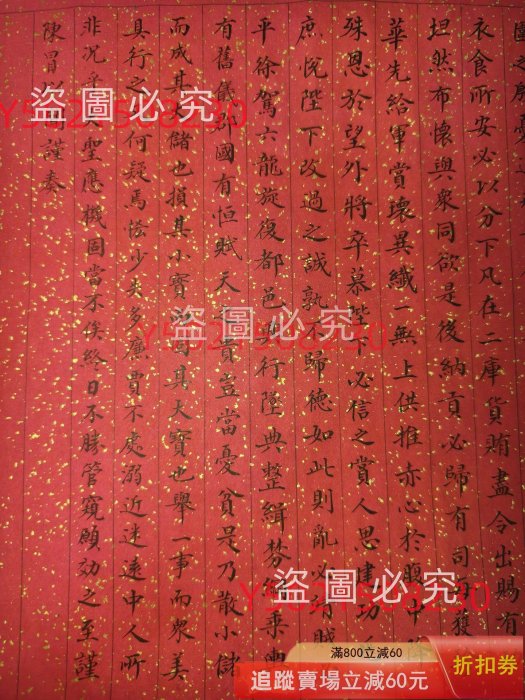 衣食所安必以分下凡在二庫貨賄盡令出賜有
坦然布懷與衆同欲是後納貢必歸有司每獲
華先給軍賞瓌異纖一無上供推赤心於腹中
殊恩於望外將卒慕陛下必信之賞人思建功
庶悅陛下改過之誠孰不歸德如此則亂必賊
平徐駕六龍旋復都邑興行墜典整緝棼乘輿
有舊儀郡國有恒賦天之貴豈當憂貧是乃散小儲
而成其大儲也損其小寶固其大寶也舉一事而衆美
具行之何疑焉恡少失多廉賈不處溺近迷遠中人所
非況乎大聖應機固當不俟終日不勝管窺願効之至謹
陳冒聞謹奏
盜圖必究
盜圖必究
盜圖必究
滿800立減60
追蹤賣場立減60元
折扣券